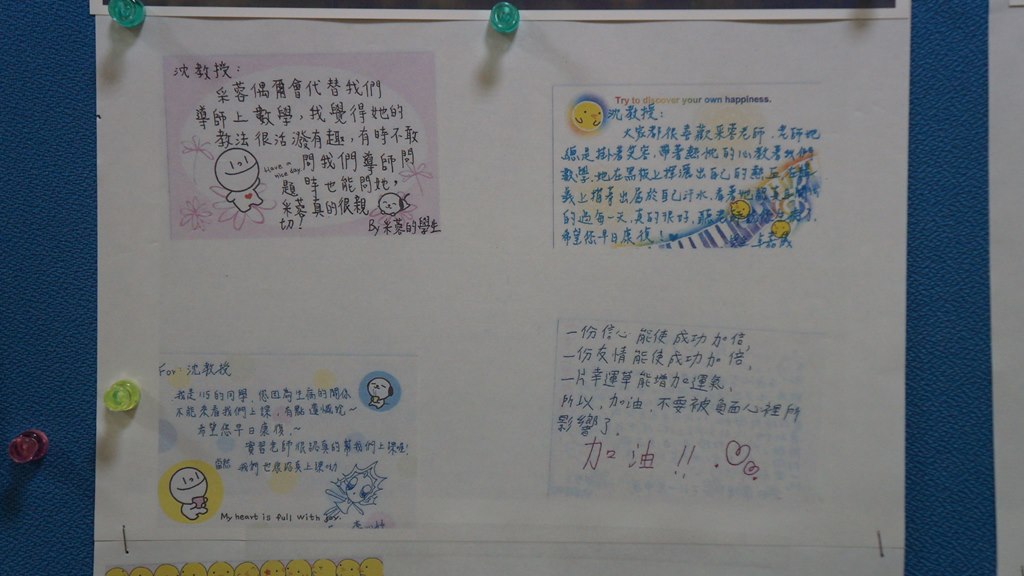 沈教授:
采蓉偶爾會代替我們
導師上數學,我覺得她的
教法很活潑有趣,有時不敢
問我們導師問
題時也能問她,
采蓉真的很親
切!
Have a
nice day.
By采蓉的學生
Try to discover your own happiness.
沈教授:
大家都很喜歡采蓉老師,老師她
總是掛著笑容,帶著熱忱的心教著我們
數學,她在黑板上揮灑出自己的熱
的過每一天,真的很好,
希望您早日康復!
For:沈教授
我是115的同學,你因為生病的關係
不能來看我們上課,有點遺憾吃~
希望您早日康復~
實習老師很認真的幫我們上課唷!
當然 我們也很認真上課喲
My heart is full with joy.
一份信心 能使成功加倍,
一份友情能使成功加倍,
一片幸運草能增加運氣,
所以,加油,不要被負面心裡所
影響了.
加油!!